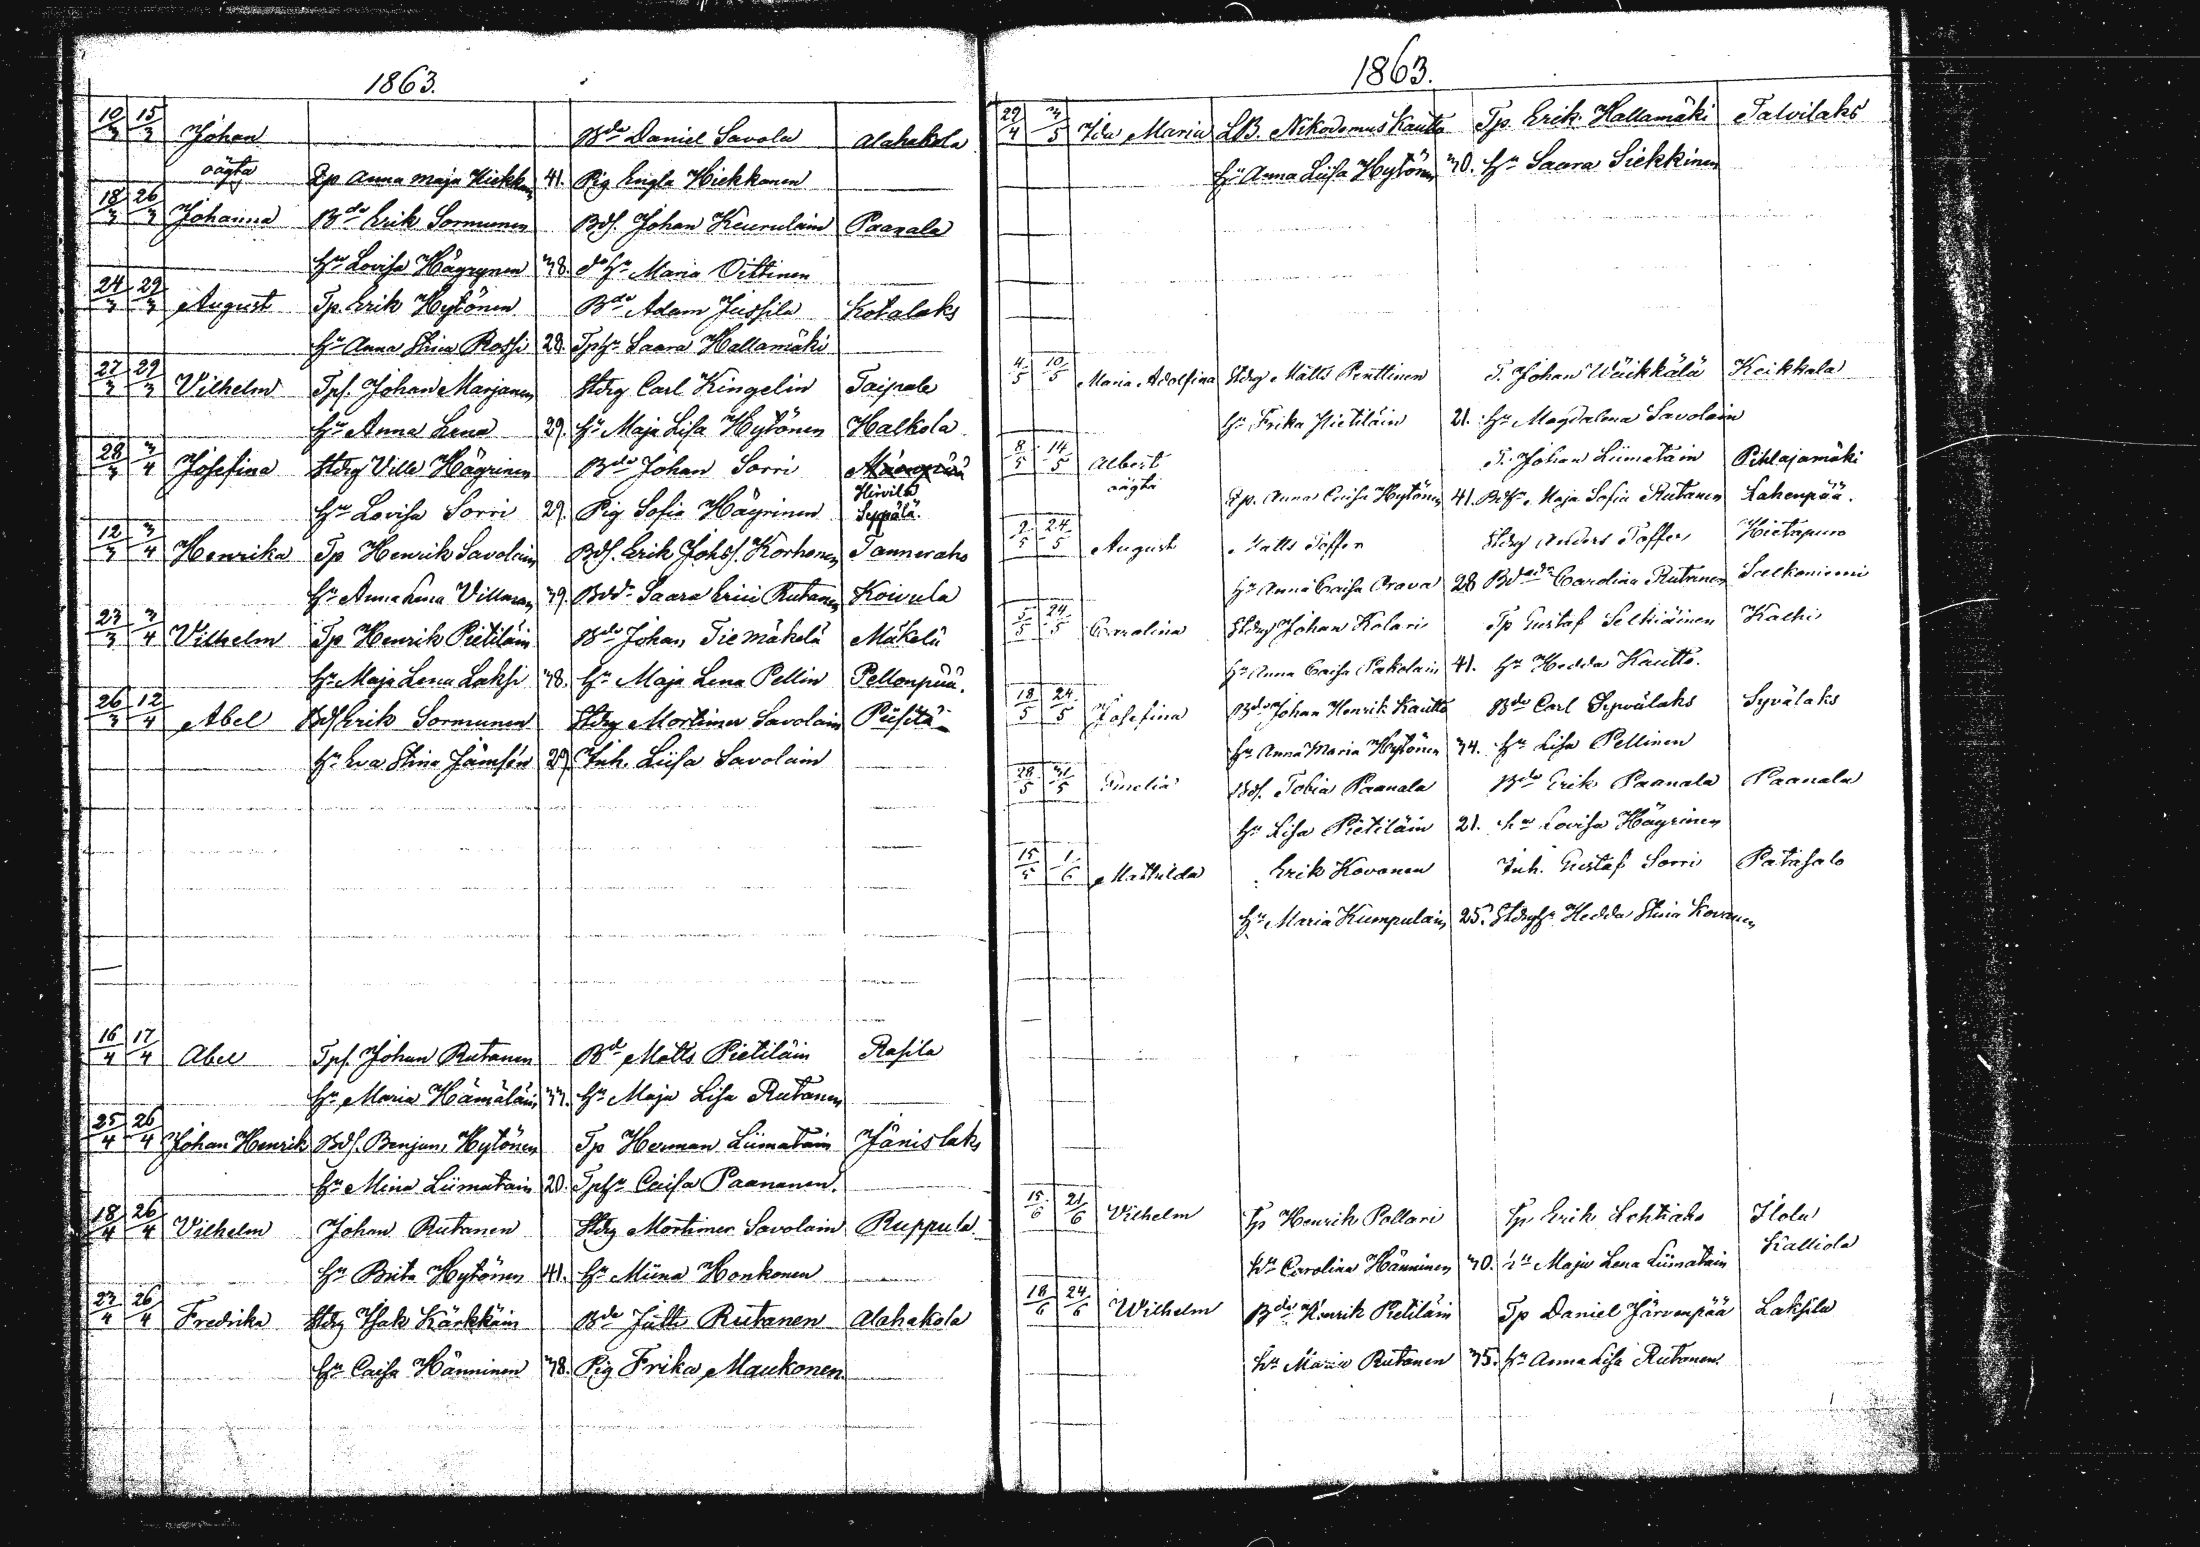 1863.
10/3 15/3 Johan Bde Daniel Savola Alahakola
oägta Tp Anna Maja Hiekkan 41. Pig Engla Hiekkonen
18/3 26/3 Johanna Bde Erik Sormunen Bds. Johan Keurulain Paanala
Hu Lovisa Häyrynen 38. do Hu Maria Oittinen
24/3 29/3 August Tp. Erik Hytönen Bde Adam Jussila Kotalaks
Hu Anna Stina Rossi 28. TpHu Saara Hallamäki
27/3 29/3 Vilhelm Tps. Johan Marjanen Stdrg Carl Kingelin Taipale
Hu Anna Lena 29. Hu Maja Lisa Hytönen Halkola
28/3 3/4 Josefina Stdrg Ville Häyrinen Bde Johan Sorri
Hirvilä
Hu Lovisa Sorri 29. Pig Sofia Häyrinen Seppälä.
12/3 3/4 Henrika Tp Henrik Savolain Bds. Erik Johss. Korhonen Tanneraho
Hu Anna Lena Villman 39. Bdd. Saara Erici Rutanen Koivula
23/3 3/4 Vilhelm Tp Henrik Pietiläin Bde Johan Tiemäkelä Mäkelä
Hu Maja Lena Laksi 38. Hu Maja Lena Pellin Pellonpää.
26/3 12/4 Abel Bds Erik Sormunen Stdrg Mortimer Savolain Piisilä
Hu Eva Stina Jämsén 29. Inh. Liisa Savolain
16/4 17/4 Abel Tps. Johan Rutanen Bd Matts Pietiläin Rasila
Hu Maria Hämäläin 33. Hu Maja Lisa Rutanen
25/4 26/4 Johan Henrik Bds. Benjam. Hytönen Tp Herman Liimatain Jänislaks
Hu Mina Liimatain 20. TpHu Caisa Paananen.
18/4 26/4 Vilhelm Johan Rutanen Stdrg Mortimer Savolain Ruppula.
Hu Brita Hytönen 41. Hu Miina Honkonen
23/4 26/4 Fredrika Stdrg Isak Kärkkäin Bde Rutanen Alahakola
Hu Caisa Hänninen 38. Pig Frika Maukonen.
1863.
29/4 3/5 Ida Maria LB. Nikodemus Kautto Tp. Erik Hallamäki Talvilaks
Hu Anna Liisa Hytönen 30. Hu Saara Siekkinen
4/5 10/5 Maria Adolfina Stdrg Matts Penttinen T. Johan Wäikkälä Keikkala
Hu Frika Pietiläin 21. Hu Magdalena Savolain
8/5 14/5 Albert T. Johan Liimatain Pihlajamäki
oägta Tp. Anna Caisa Hytönen 41. BdHu Maja Sofia Rutanen Lahenpää.
9/5 24/5 August Matts Toffer Stdrg Anders Toffer Hietapuro
Hu Anna Caisa Orava 28 Carolina Rutanen Saelkoniemi
5/5 24/5 Carolina Stdrg Johan Kolari Tp Gustaf Selkiäinen Kalhi
Hu Anna Caisa Pakolain 41. Hu Hedda Kautto.
18/5 24/5 Josefina Bde Johan Henrik Kautto Bde Carl Syvälaks Syvälaks
Hu Anna Maria Hytönen 34. Hu Lisa Pellinen
28/5 31/5 Emelia Bds. Tobia Paanala Bde Erik Paanala Paanala
Hu Lisa Pietiläin 21. Hu Lovisa Häyrinen
15/5 1/6 Mathilda Erik Kovanen Inh. Gustaf Sorri Patasalo
Hu Maria Kumpulain 25. StdrgHu Hedda Stina Kovanen
15/6 21/6 Vilhelm Tp Henrik Pollari Tp Erik Lehtiaho Ilola
Hu Carolina Hänninen 30. Hu Maja Lena Liimatain Kalliola
18/6 24/6 Wilhelm Bde Henrik Pietiläin Tp Daniel Järvenpää Laksila
Hu Maria Rutanen 35. Hu Anna Lisa Rutanen.